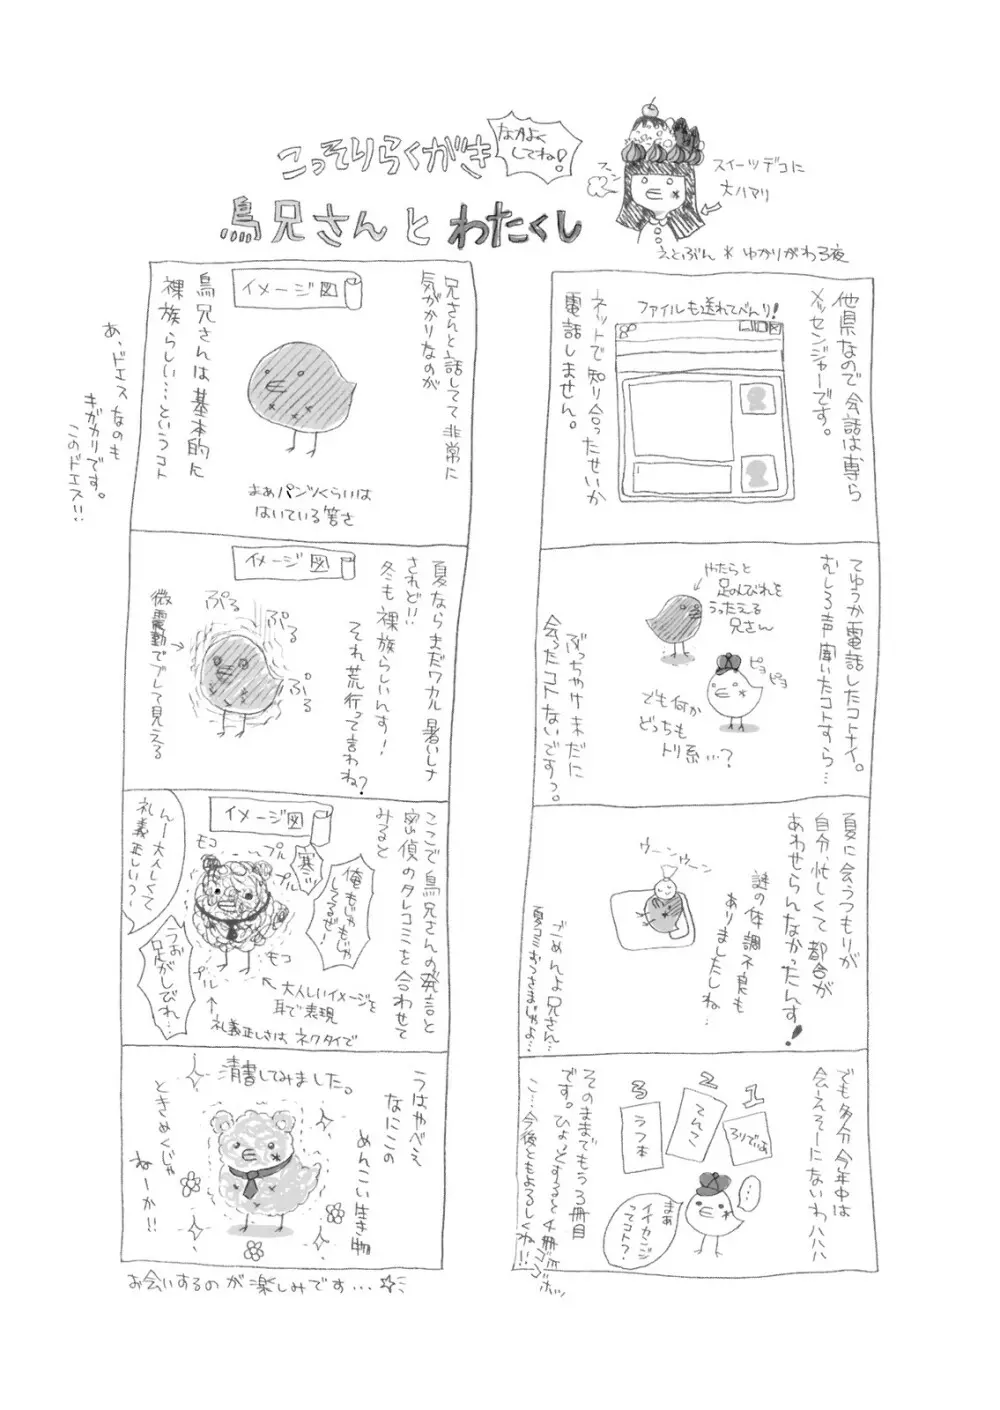 こっそりらくがき
なかよく
してね!
鳥兄さんとわたくし
フンッ
スイーツデコに
大ハマリ
えとぶん * ゆかりがわる夜
他県なので会話は専ら
メッセンジャーです。
ファイルも送れてべんり!
ネットで知り合ったせいか
電話しません。
てゆうか電話したコトナイ。
むしろ声聞いたコトすら…
やたらと
足のしびれを
うったえる
兄さん
ピヨ
ピヨ
でも何か
どっちも
トリ系…?
ぶっちゃけまだに
会ったコトないですっ。
夏に会うつもりが
自分、忙しくて都合が
あわせらんなかったんす!
ウーンウーン
謎の体調不良も
ありましたしね…
ごめんよ兄さん…
夏コミおつさまじゃよ…
でも多分今年中は
会ーえそーにないわハハハ
1
2
3
ろりでぃあ
てんく
うつ本
…
まぁ
イイセンジ
ってコト?
そのままでもう3冊目
です。ひょっとすると4冊ゴホ
ゴホッ
こ…今後ともよろしくね!!
兄さんと話してて非常に
気がかりなのが
イメージ図
鳥兄さんは基本的に
裸族らしい…というコト
まぁパンツくらいは
はいている筈さ
あ、ドエスなのも
キガカリです。
このドエス!!
夏ならまだワカル暑いしさ
されど!!
冬も裸族らしいんす!
それ荒行って言わね?
イメージ図
ぷる
ぷる
ぷる
微震動でブレて見える
ここで鳥兄さんの発言と
密偵のタレコミを合わせて
みると
イメージ図
モコ
プル
プル
寒ッ
俺もじゃもじゃ
してるぜ!
んー大人しくて
礼義正しい?
うお
足がしびれ…
モコ
プル
大人しいイメージを
耳で表現
礼義正しさは、ネクタイで
うはやべえ
なにこの
めんこい生き物
清書してみました。
ときめくじゃ
ねーか!!
お会いするのが楽しみです…☆